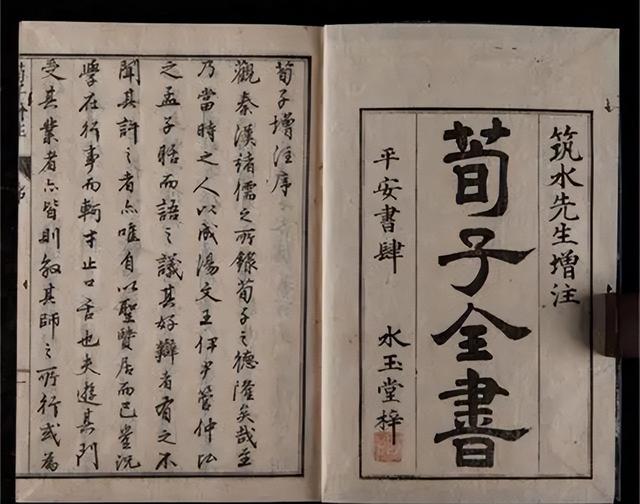 筑水先生增注
荀子全書
平安書肆
水玉堂梓
荀子增注序
觀秦漢諸儒之所錄荀子之德隆矣哉至
乃當時之人以成湯文王伊尹管仲
之孟子而語之議其好辯者有之不
聞其許之者亦唯自以聖賢居而已豈況
學在行事而軻才止口舌也夫遊其門
受其業者亦皆則效其師之所行或為